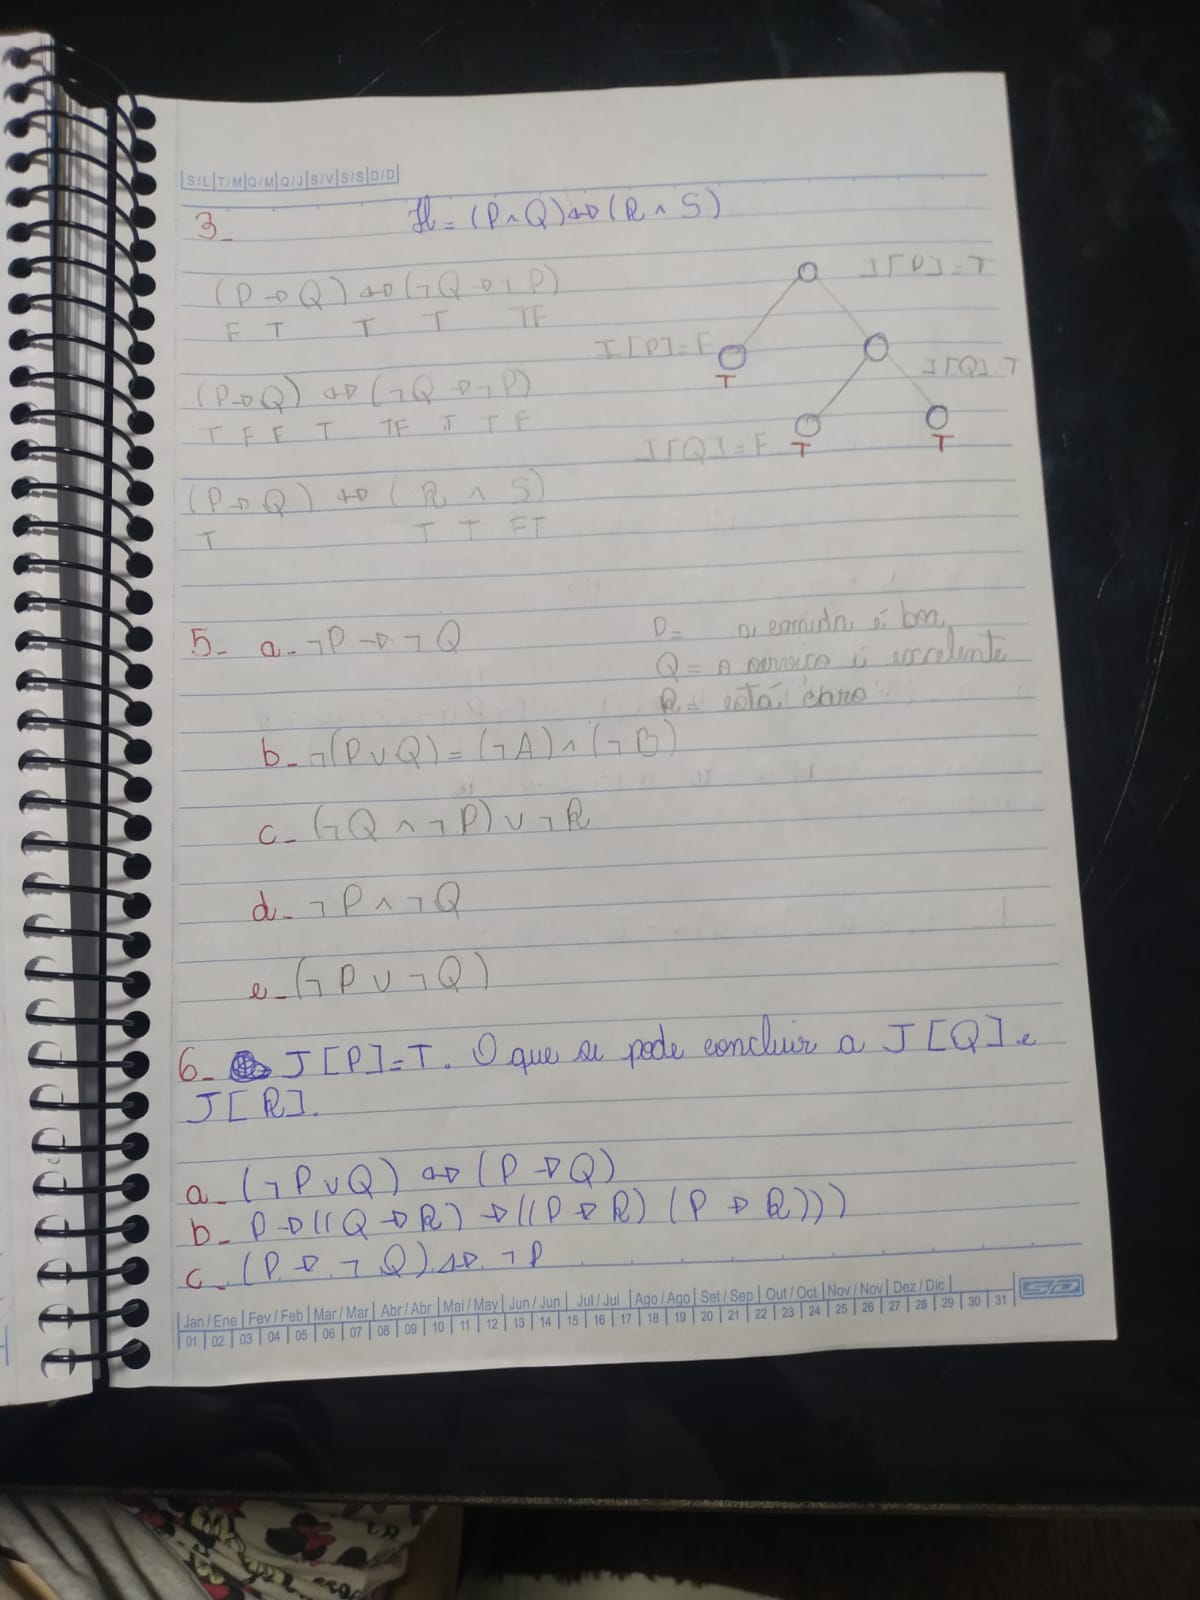 S/L|T/M|Q/M|Q/J|S/V|S/S|D/D
3_ H = (P ∧ Q) ↔ (R ∧ S)
(P → Q) ↔ (¬Q → ¬P)
F T T T TF
J[P]=T
J[P]=F
T
(P → Q) ↔ (¬Q → ¬P)
T F F T TF T T F
J[Q]=T
J[Q]=F T
T
(P → Q) ↔ (R ∧ S)
T T T FT
5_ a_ ¬P → ¬Q
P= a comida é boa
Q = o serviço é excelente
R= está caro
b_ ¬(P ∨ Q) = (¬A) ∧ (¬B)
c_ (¬Q ∧ ¬P) ∨ ¬R
d_ ¬P ∧ ¬Q
e_ (¬P ∨ ¬Q)
6_ J[P]=T. O que se pode concluir a J[Q] e
J[R].
a_ (¬P ∨ Q) ↔ (P → Q)
b_ P → ((Q → R) → ((P → R) (P → R)))
c_ (P → ¬Q) ↔ ¬P
Jan/Ene | Fev/Feb | Mar/Mar | Abr/Abr | Mai/May | Jun/Jun | Jul/Jul | Ago/Ago | Set/Sep | Out/Oct | Nov/Nov | Dez/Dic
01 02 03 04 05 06 07 08 09 10 11 12 13 14 15 16 17 18 19 20 21 22 23 24 25 26 27 28 29 30 31
SD